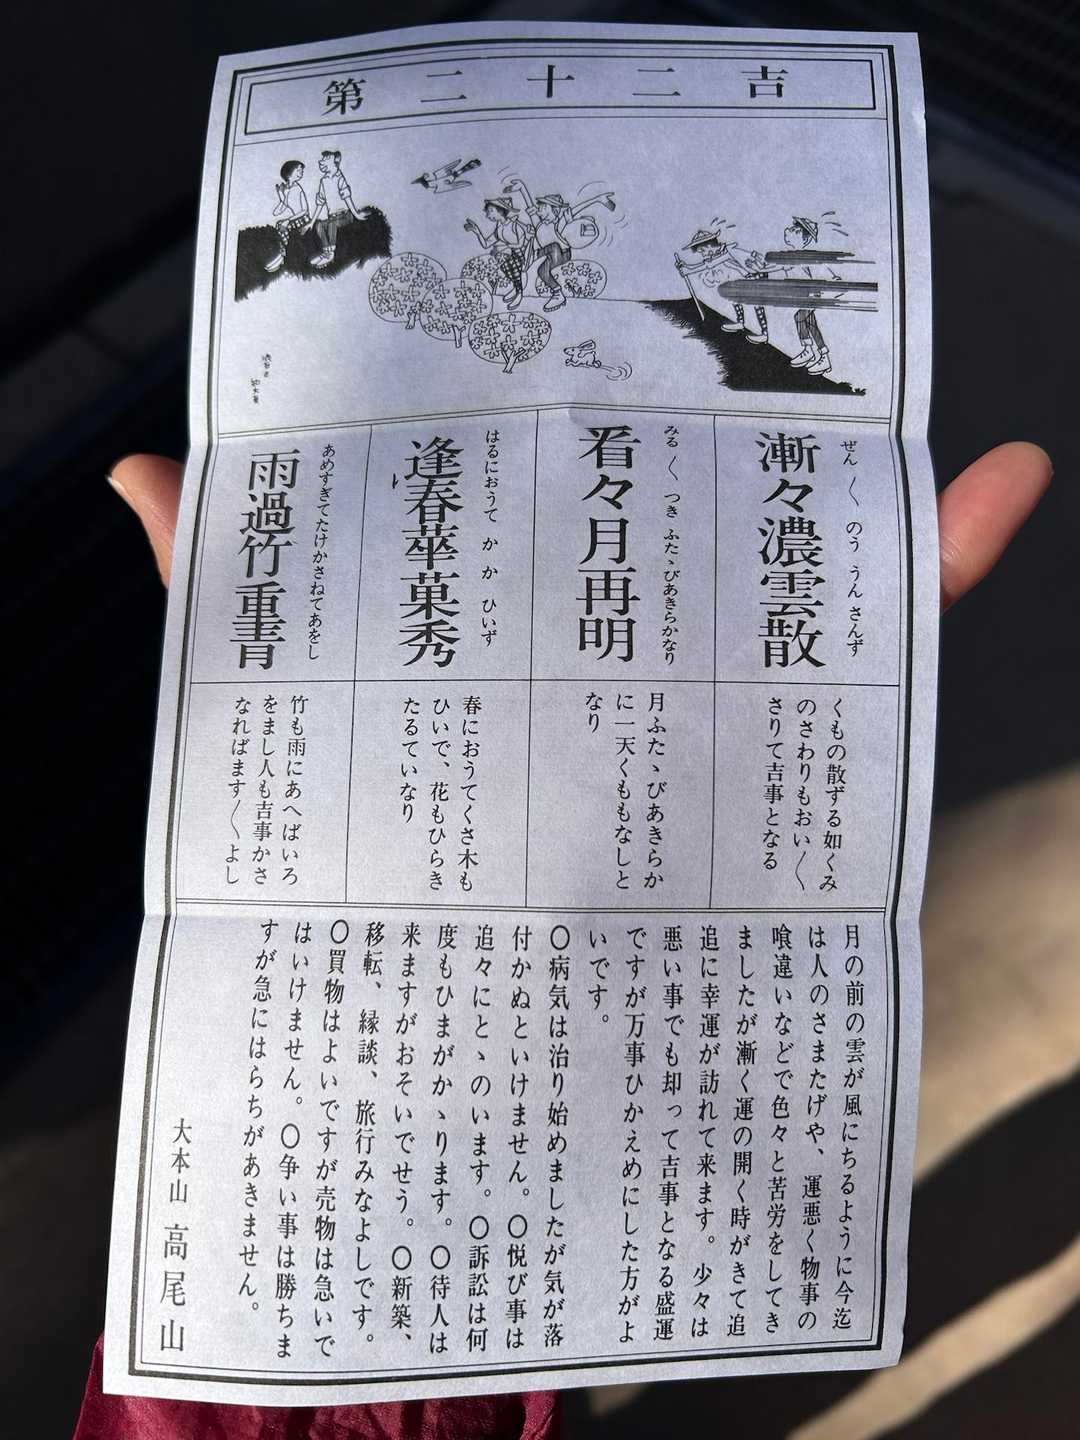 第二十二吉
漸々濃雲散
ぜん〳〵のううんさんず
くもの散ずる如くみ
のさわりもおい〳〵
さりて吉事となる
看々月再明
みる〳〵つきふたゝびあきらかなり
月ふたゝびあきらか
に一天くももなしと
なり
逢春華菓秀
はるにおうてかかひいず
春におうてくさ木も
ひいで、花もひらき
たるていなり
雨過竹重青
あめすぎてたけかさねてあをし
竹も雨にあへばいろ
をまし人も吉事かさ
なればます〳〵よし
月の前の雲が風にちるように今迄
は人のさまたげや、運悪く物事の
喰違いなどで色々と苦労をしてき
ましたが漸く運の開く時がきて追
追に幸運が訪れて来ます。少々は
悪い事でも却って吉事となる盛運
ですが万事ひかえめにした方がよ
いです。
〇病気は治り始めましたが気が落
付かぬといけません。〇悦び事は
追々にとゝのいます。〇訴訟は何
度もひまがかゝります。〇待人は
来ますがおそいでせう。〇新築、
移転、縁談、旅行みなよしです。
〇買物はよいですが売物は急いで
はいけません。〇争い事は勝ちま
すが急にはらちがあきません。
大本山 高尾山